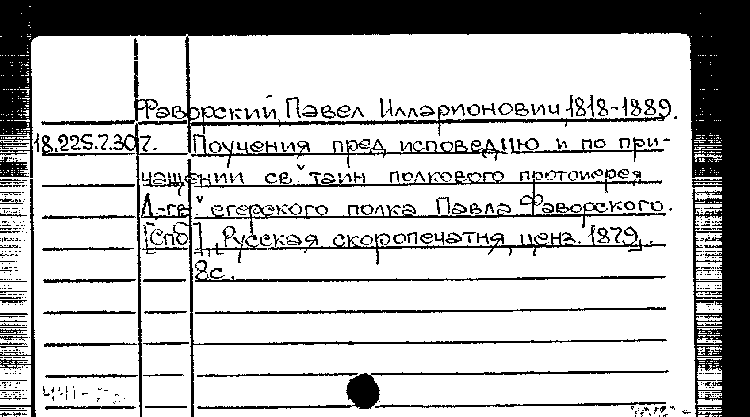 Фаворский, Павел Илларионович, 1818-1889.
18.225.7.307. Поучения пред исповедию и по при-
чащении св. таин полкового протоиерея
Л-гв. егерского полка Павла Фаворского.
[Спб.], Русская скоропечатня, ценз. 1879.
8с.